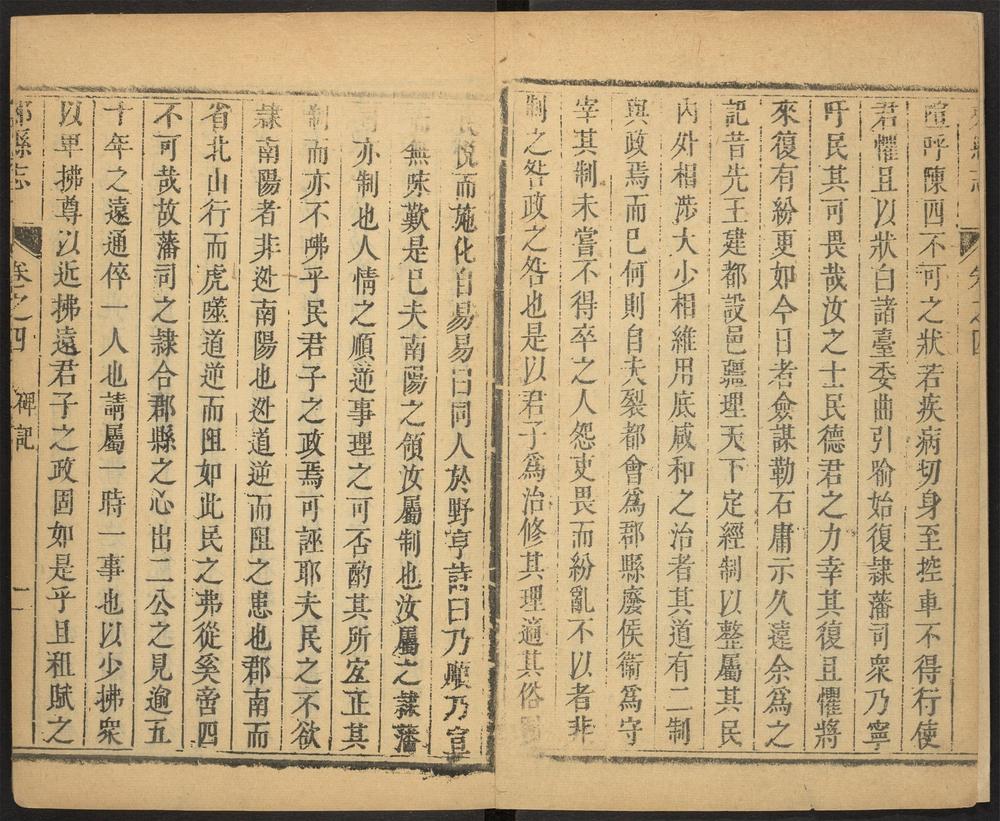 喧呼陳四不可之狀若疾病切身至控車不得行使
君懼且以狀白諸臺委曲引喻始復隸藩司衆乃寧
吁民其可畏哉汝之士民德君之力幸其復且懼將
來復有紛更如今日者僉謀勒石庸示久遠余爲之
記昔先王建都設邑疆理天下定經制以整屬其民
內外相渉大少相維用底咸和之治者其道有二制
與政焉而已何則自夫裂都會爲郡縣廢侯衛爲守
宰其制未嘗不得卒之人怨吏畏而紛亂不以者非
制之咎政之咎也是以君子爲治修其理適其俗
悅而施化自易易曰同人於野亨詩曰乃順乃宣
無咏歎是已夫南陽之領汝屬制也汝屬之隸藩
亦制也人情之順逆事理之可否酌其所宜正其
制而亦不咈乎民君子之政焉可誣耶夫民之不欲
隸南陽者非逃南陽也逃道逆而阻之患也郡南而
省北山行而虎噬道逆而阻如此民之弗從奚啻四
不可哉故藩司之隸合郡縣之心出二公之見逾五
十年之遠通倅一人也請屬一時一事也以少拂衆
以卑拂尊以近拂遠君子之政固如是乎且租賦之
郟縣志 卷之四 碑記